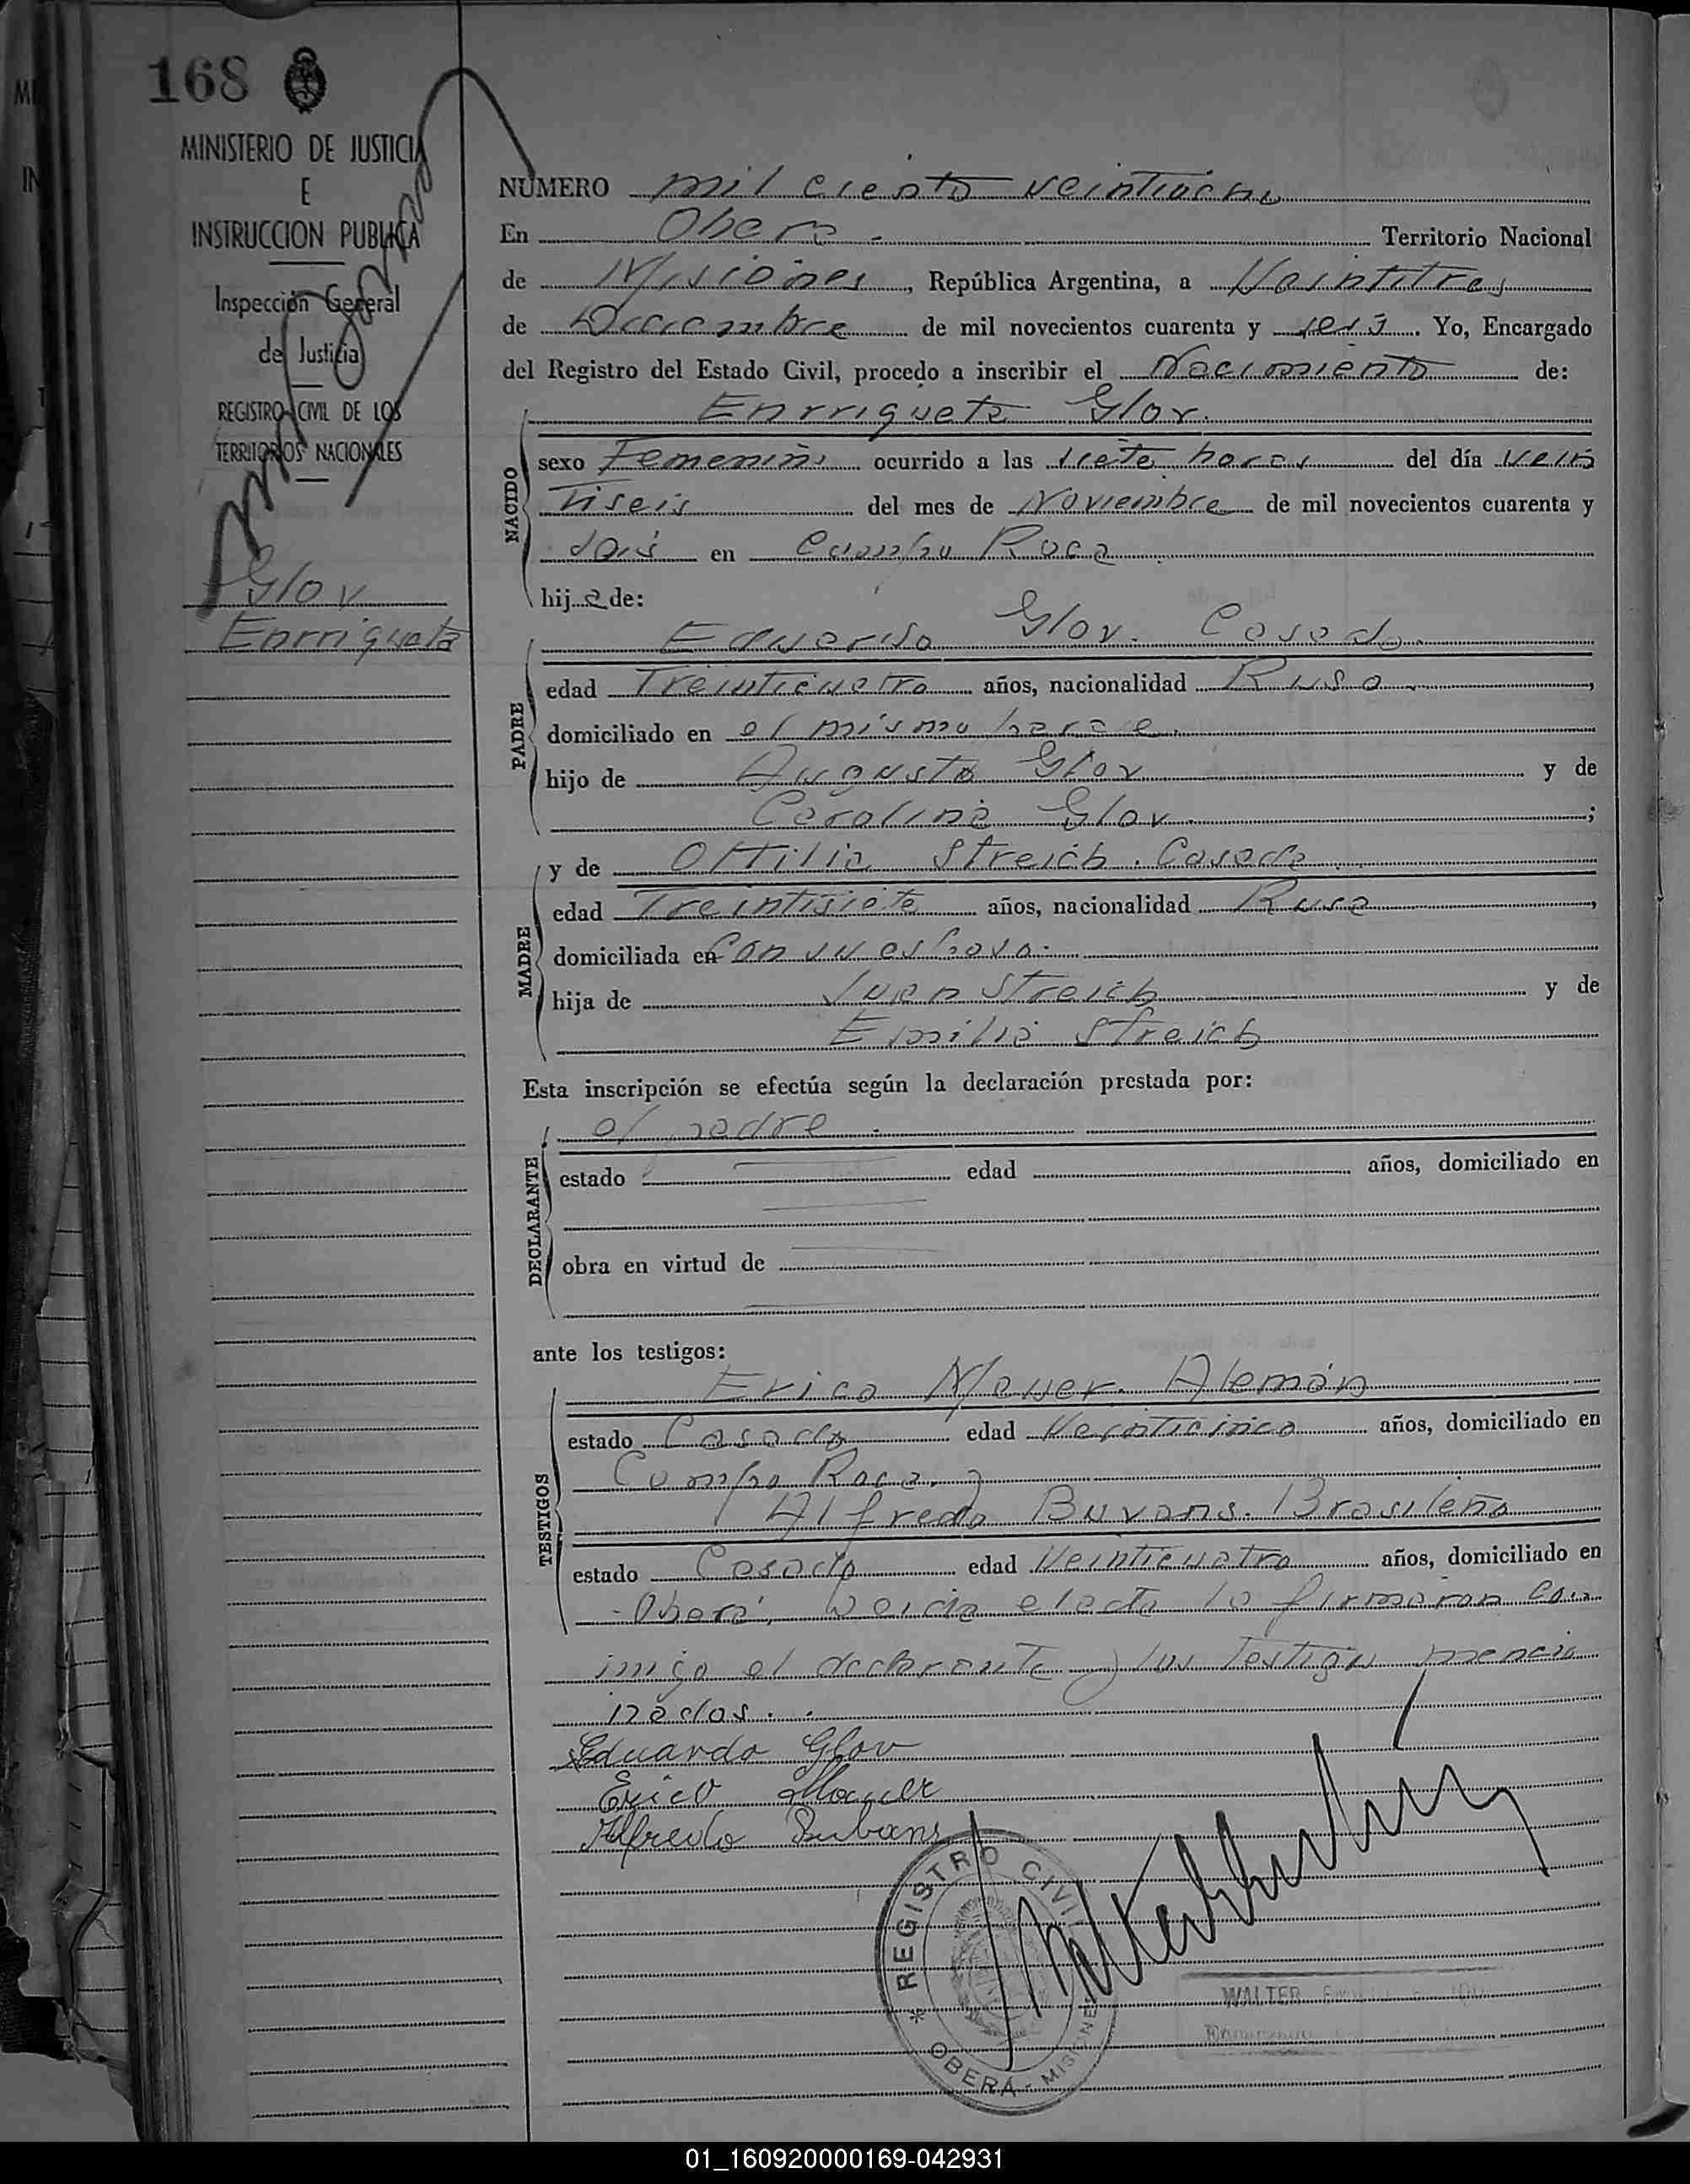 168
MINISTERIO DE JUSTICIA
E
INSTRUCCION PUBLICA
Inspección General
de Justicia
REGISTRO CIVIL DE LOS
TERRITORIOS NACIONALES
Glov
Enrriqueta
NÚMERO mil ciento
En Obera - Territorio Nacional
de Misiones, República Argentina, a Veintitres
de Diciembre de mil novecientos cuarenta y seis. Yo, Encargado
del Registro del Estado Civil, procedo a inscribir el Nacimiento de:
Enrriqueta Glov.
NACIDO
sexo Femenino ocurrido a las siete horas del día vein
tiseis del mes de Noviembre de mil novecientos cuarenta y
dois en Campo Roca
hija de:
PADRE
Eduardo Glov. Casado.
edad Treinticuatro años, nacionalidad Rusa,
domiciliado en el mismo
hijo de Augusto Glov y de
Carolina Glov;
MADRE
y de Ottilia Streich. Casada.
edad Treintisiete años, nacionalidad Rusa,
domiciliada en con su esposo.
hija de Juan Streich y de
Emilia Streich
Esta inscripción se efectúa según la declaración prestada por:
DECLARANTE
el padre.
estado edad años, domiciliado en
obra en virtud de
ante los testigos:
TESTIGOS
Erico Mauer. Alemán
estado Casado edad Veinticinco años, domiciliado en
Campo Roca y
Alfredo Buvans. Brasileño
estado Casado edad Veinticuatro años, domiciliado en
Oberá, el acta la firmaron con
migo el declarante y los testigos mencio
nados.
Eduardo Glov
Erico Mauer
Alfredo Bubans
REGISTRO CIVIL
* OBERÁ - MISIONES
WALTER
01_160920000169-042931